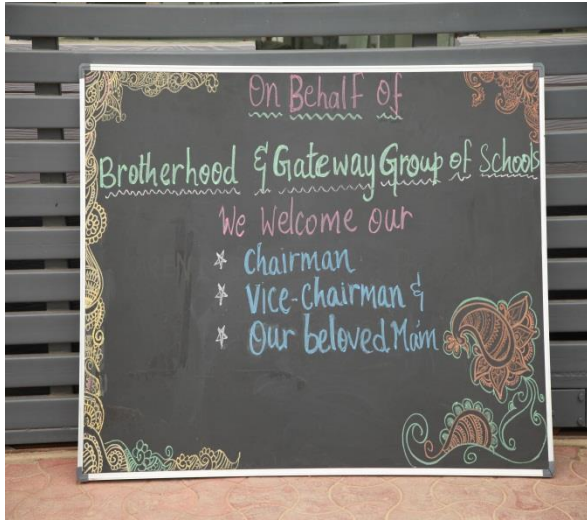 On Behalf of
Brotherhood & Gateway Group of Schools
We Welcome our
Chairman
Vice-Chairman &
Our beloved Ma'm